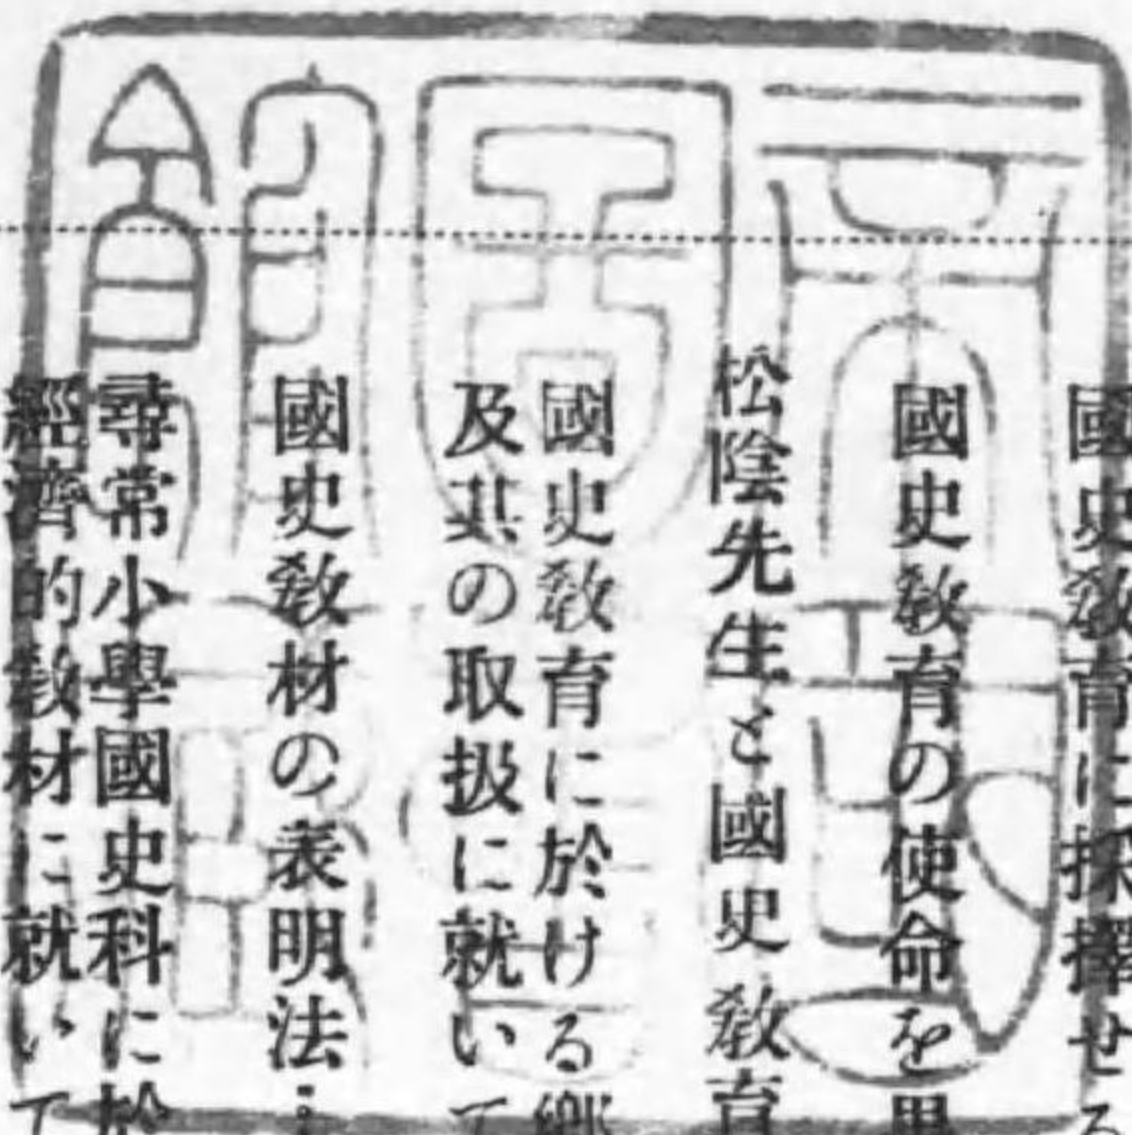 國史敎育に採擇せる
國史敎育の使命を思
松陰先生と國史敎育
國史敎育に於ける鄕
及其の取扱に就いて
國史敎材の表明法…
尋常小學國史科に於
經濟的敎材に就いて